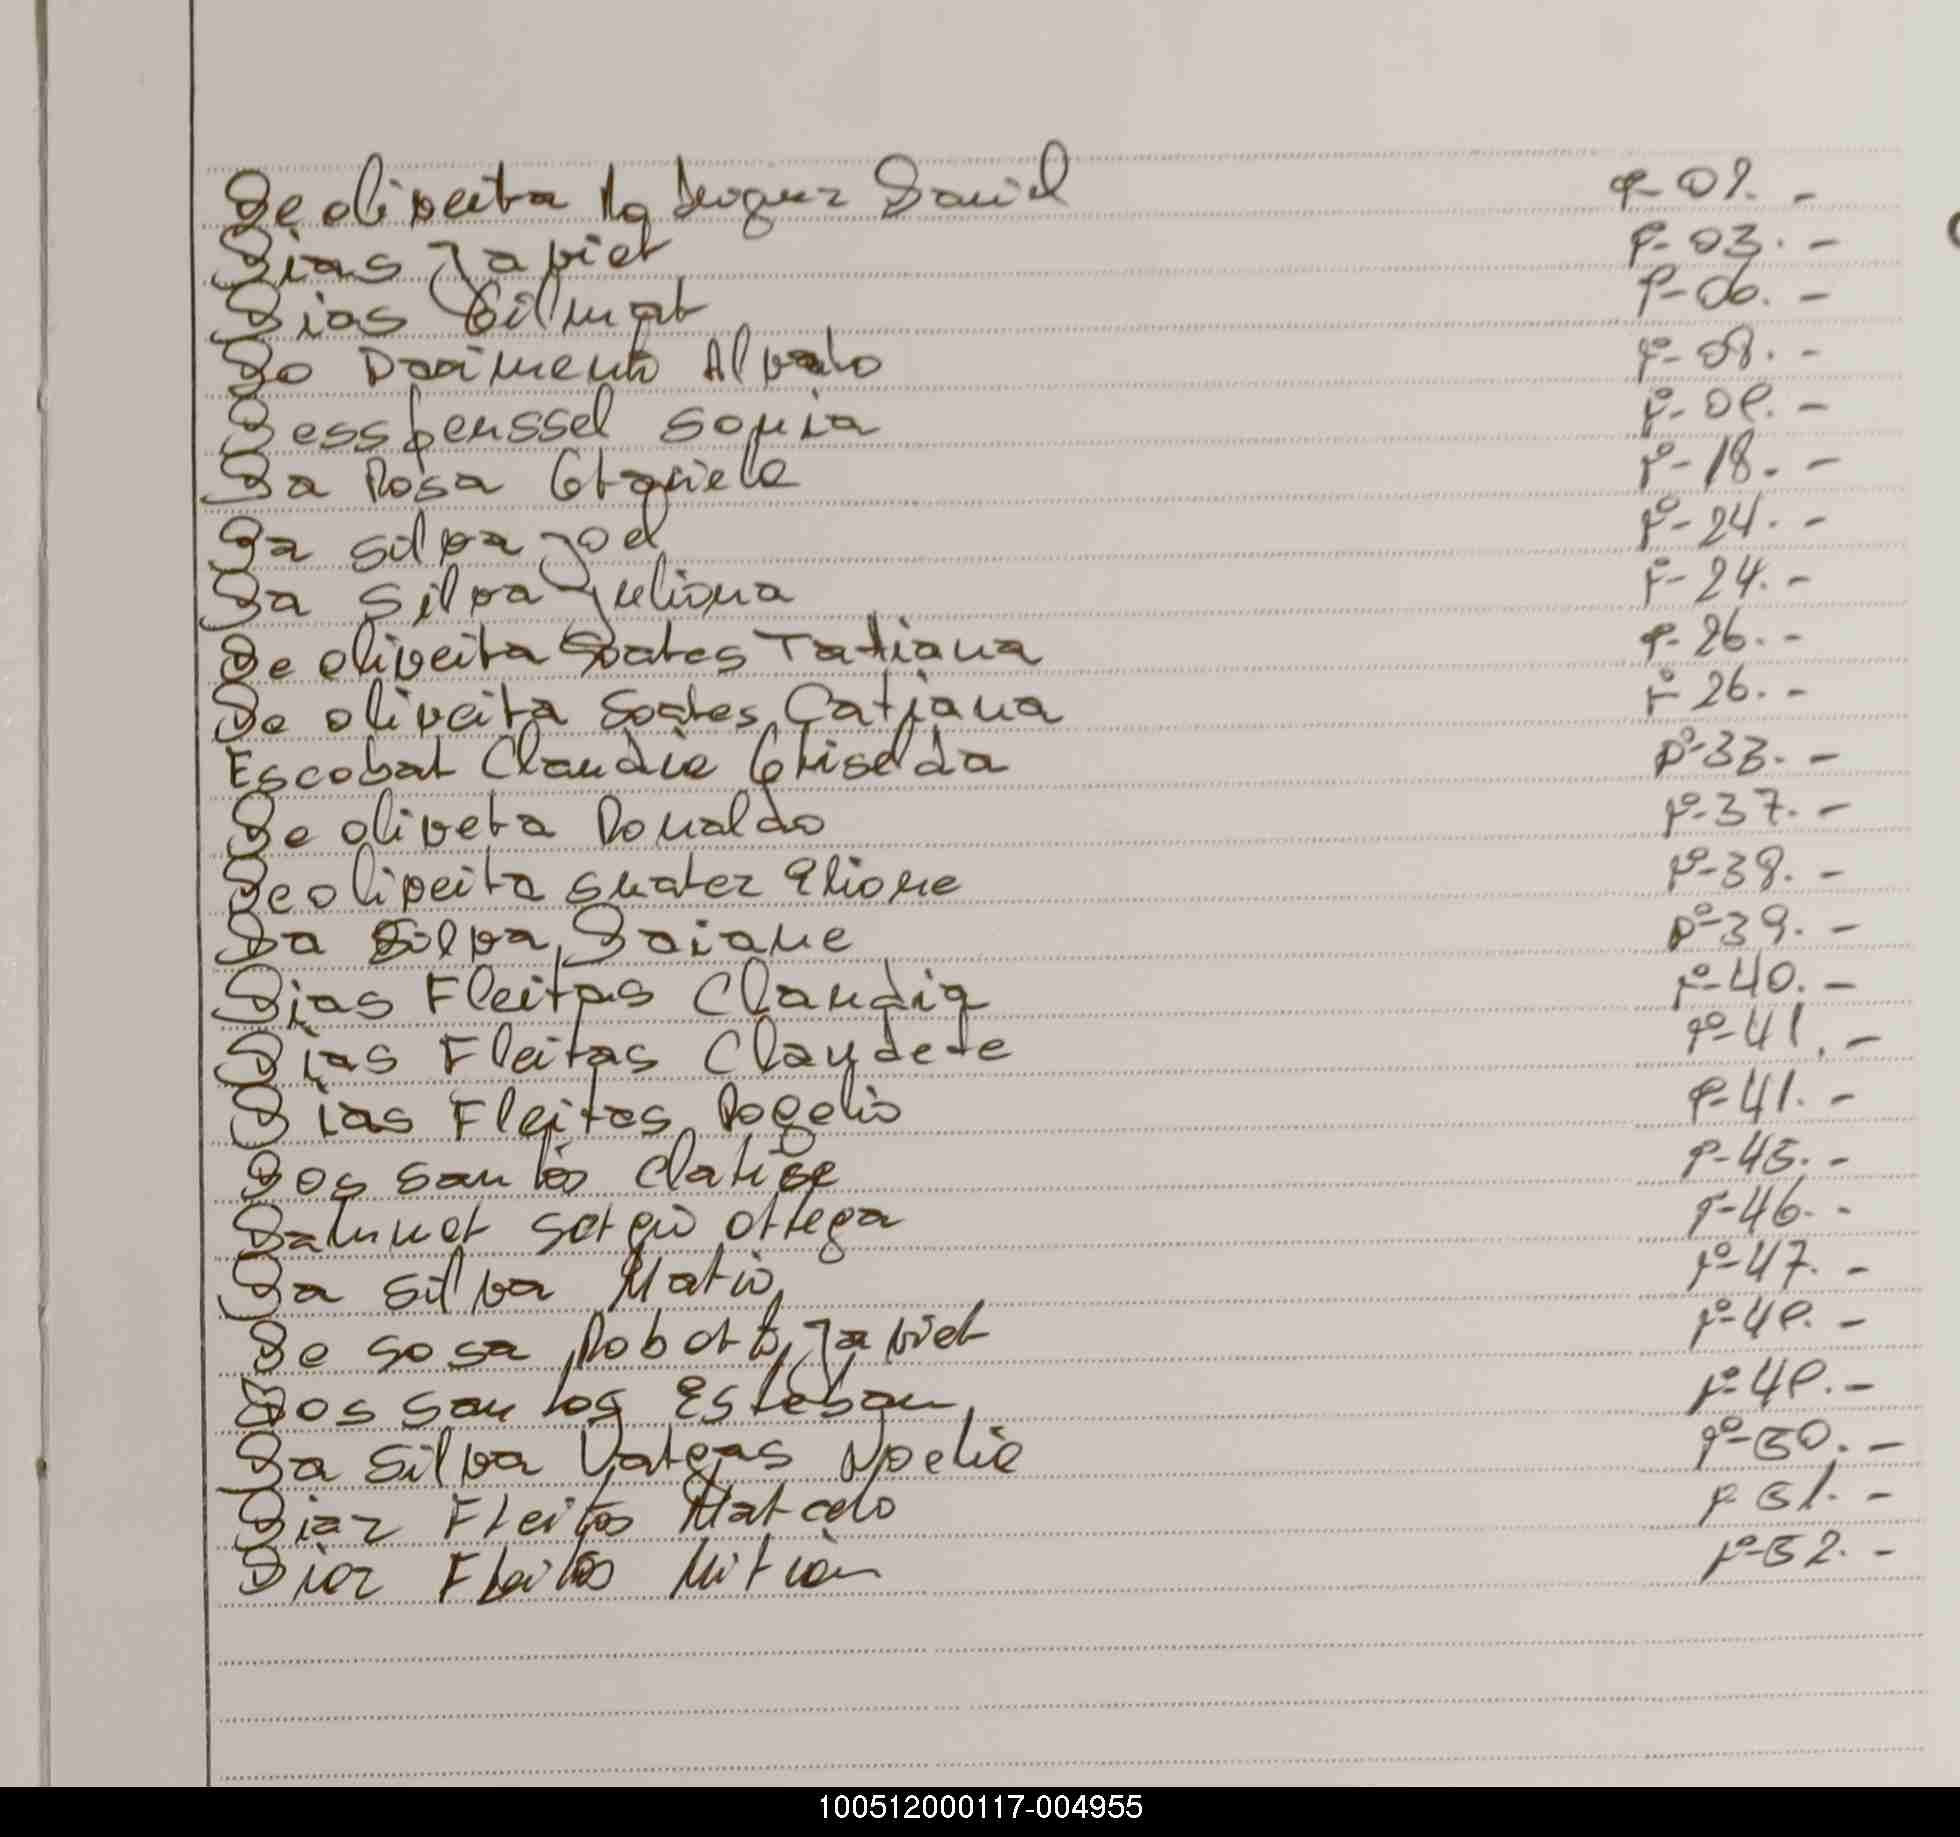 De oliveira Rodriguez Daniel P-02.-
Dias Javier P-03.-
Dias Gilmar P-06.-
Do Nacimento Alvaro Pº-08.-
Sonia Pº-09.-
Da Rosa Graciela Pº-18.-
Da silva Joel Pº-24.-
Da Silva Juliana Pº-24.-
De oliveira Soares Tatiana P-26.-
De oliveira Soares Catiana Pº 26.-
Escobar Claudia Griselda Pº-33.-
De olivera Ronaldo Pº-37.-
De oliveira suarez Eliane Pº-38.-
Da Silva Daiane Pº-39.-
Dias Fleitas Claudia Pº-40.-
Dias Fleitas Claudete Pº-41.-
Dias Fleitas Rogelio P-41.-
Dos santos Clarise P-45.-
sergio ortega P-46.-
Da silva Mario Pº-47.-
De sosa Roberto Javier Pº-49.-
Dos santos Esteban Pº-49.-
Da Silva Vargas Noelia Pº-50.-
Diaz Fleitas Marcelo P-51.-
Diaz Fleitas Mirian Pº-52.-
100512000117-004955